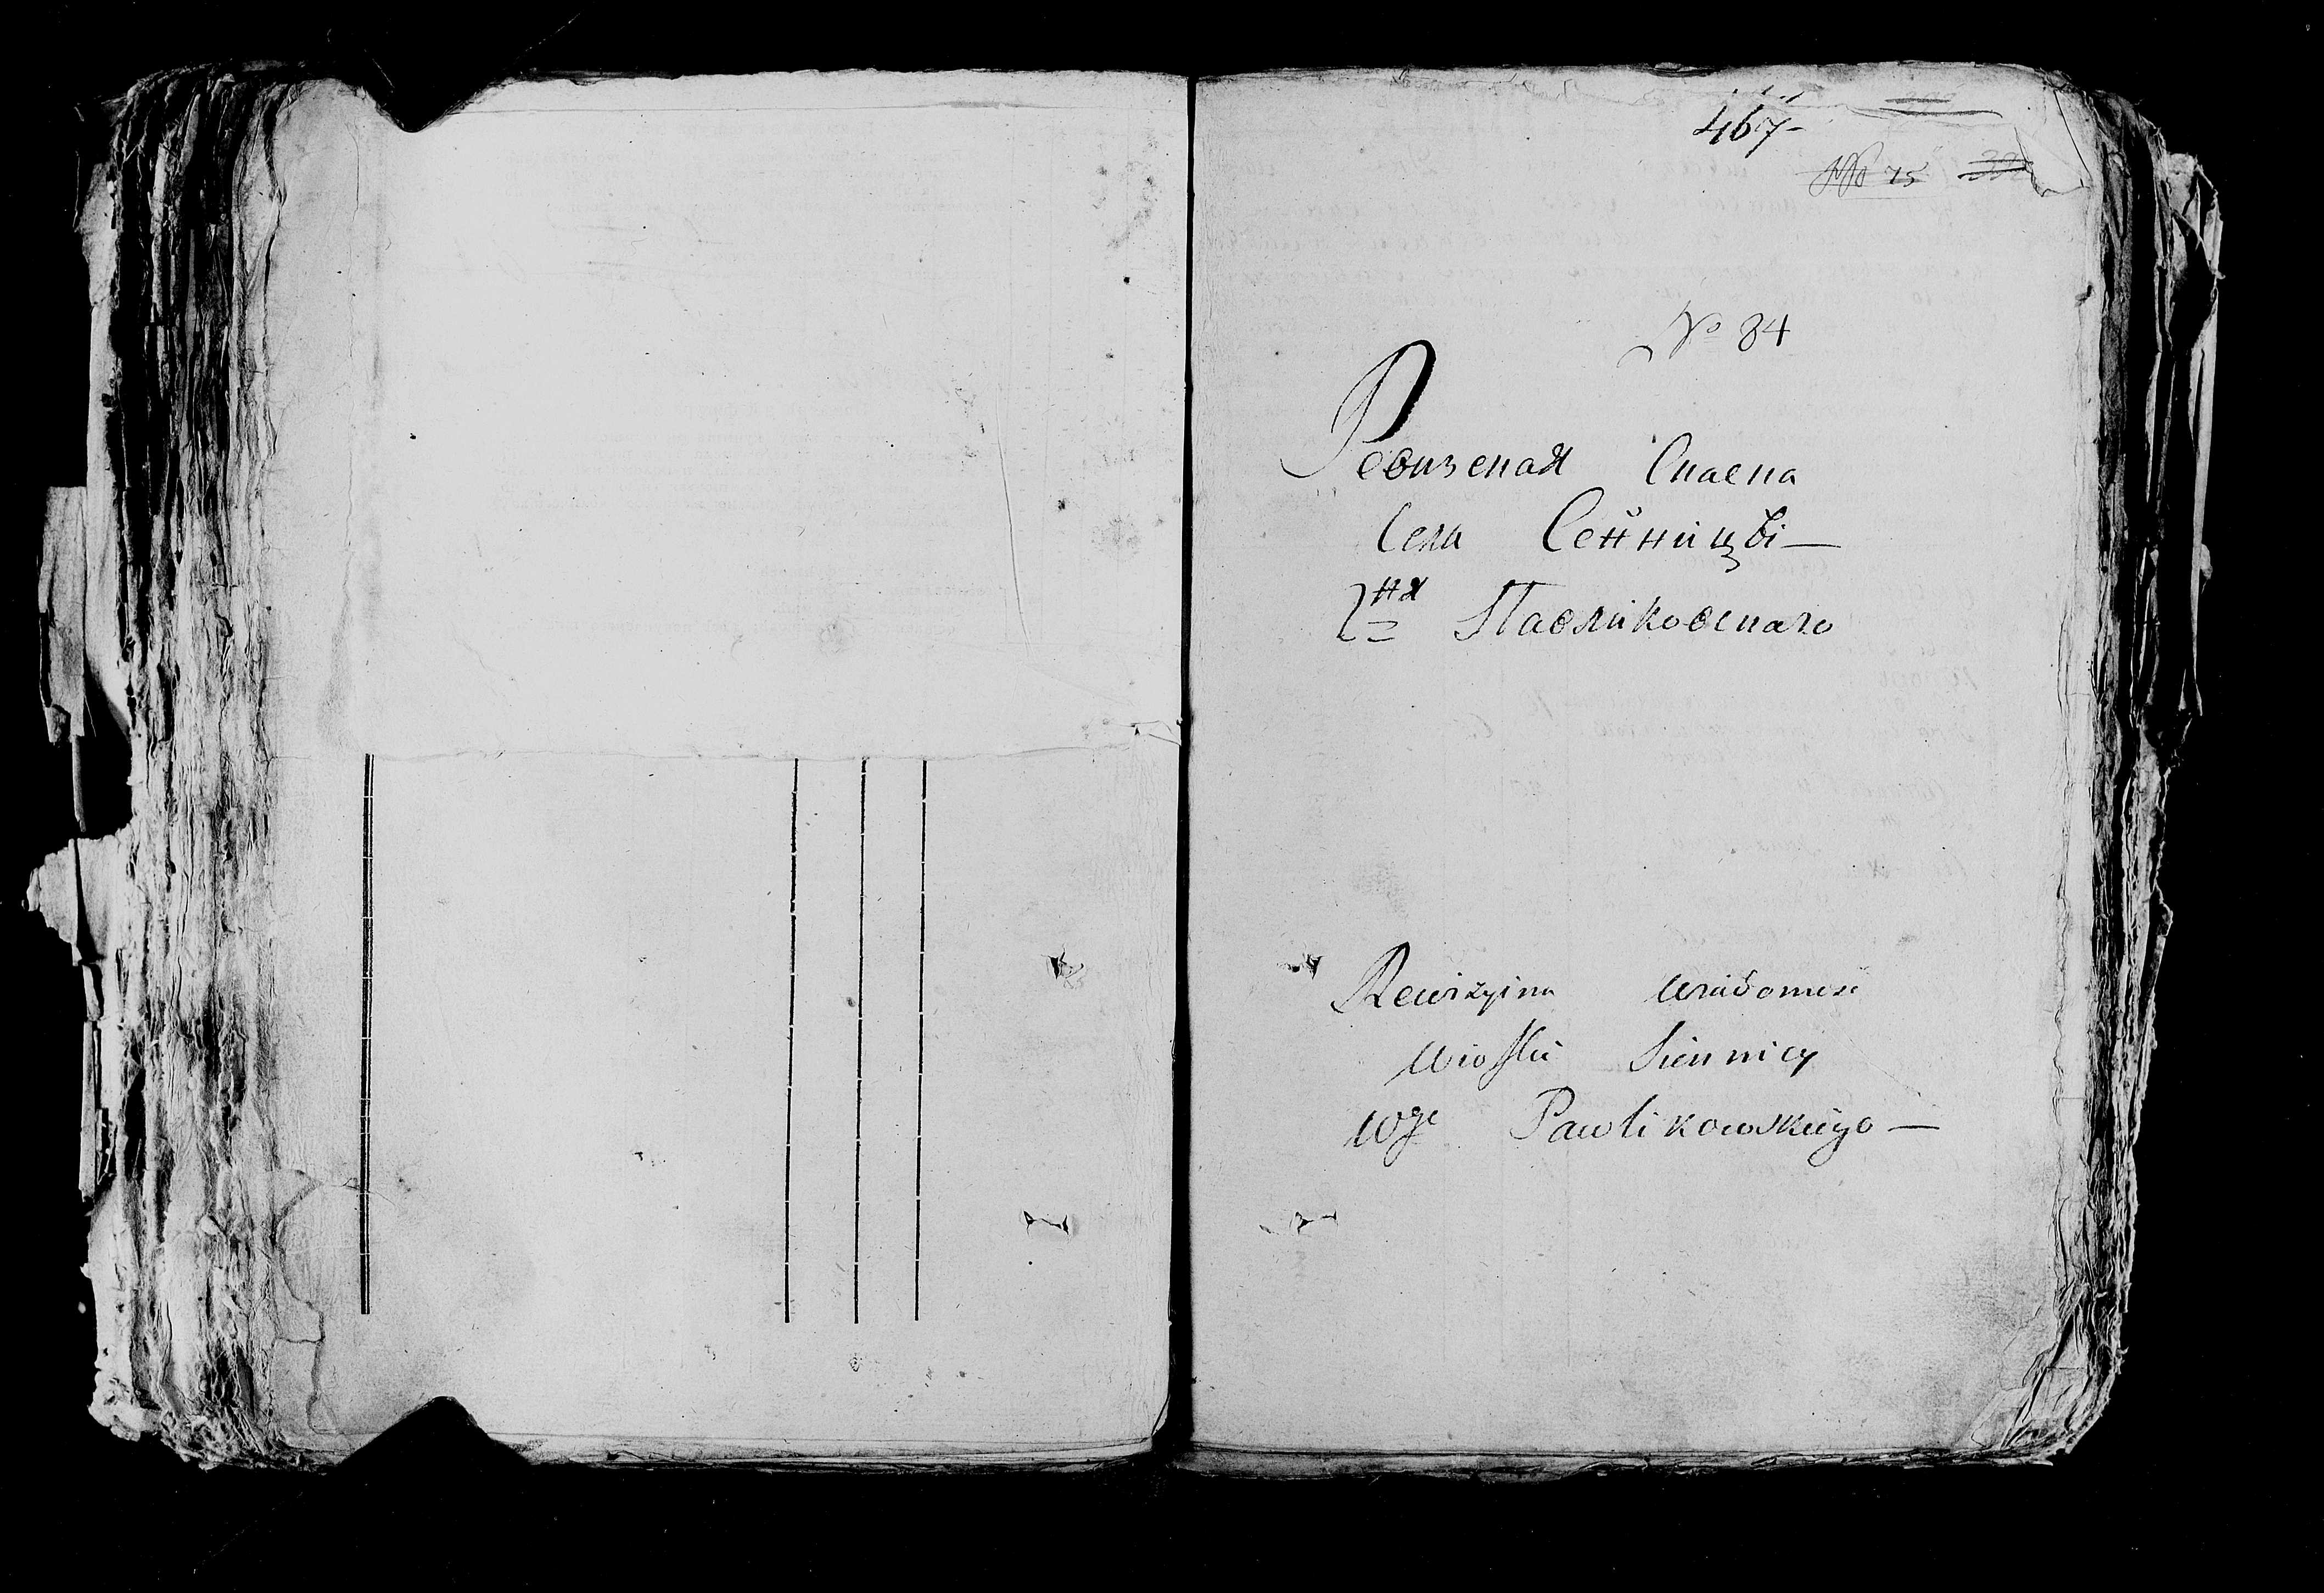 467-
№ 75
№ 84
Ревизская Скаска
Села Сенницы—
Гна Павликовскаго
Rewizyina Wiadomosc
Wioski Siennicy
Wgo Pawlikowskiego —